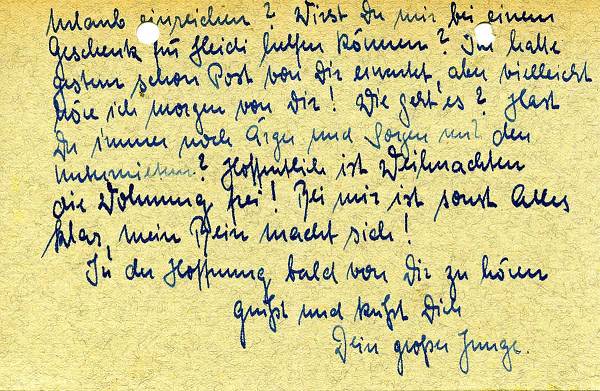 Urlaub einreichen? Wirst Du mir bei einem
Geschenk für Heidi helfen können? Ich hatte
gestern schon Post von Dir erwartet, aber vielleicht
höre ich morgen von Dir! Wie geht es? Hast
Du immer noch Ärger und Sorgen mit den
Untermietern? Hoffentlich ist Weihnachten
die Wohnung frei! Bei mir ist sonst Alles
klar, mein Bein macht sich!
In der Hoffnung bald von Dir zu hören
grüßt und küßt Dich
Dein großer Junge.